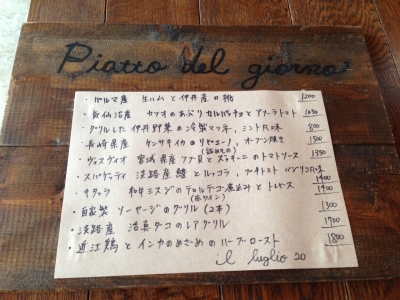 Piatto del giorno
・パルマ産 生ハムと伊丹産の桃 1200
・気仙沼産 カツオのあぶりカルパッチョとアメーラトマト 1650
・グリルした伊丹野菜の冷製マリネ、ミント風味 800
・長崎県産 ケンサキイカのリピエーノ、オーブン焼き 1500
(詰めもの)
・ヴェスヴィオ 宮城県産ツブ貝とズッキーニのトマトソース 1350
・スパゲッティ 淡路産鱧とルッコラ、プチトマト パン粉風味 1400
・キタッラ 和牛ミスジのテロルデゴ煮込みとトレビス 1400
(赤ワイン)
・自家製 ソーセージのグリル(2本) 1300
・淡路産 活真ダコのレアグリル 1700
・近江鶏とインカのめざめのハーブロースト 1800
il luglio 20